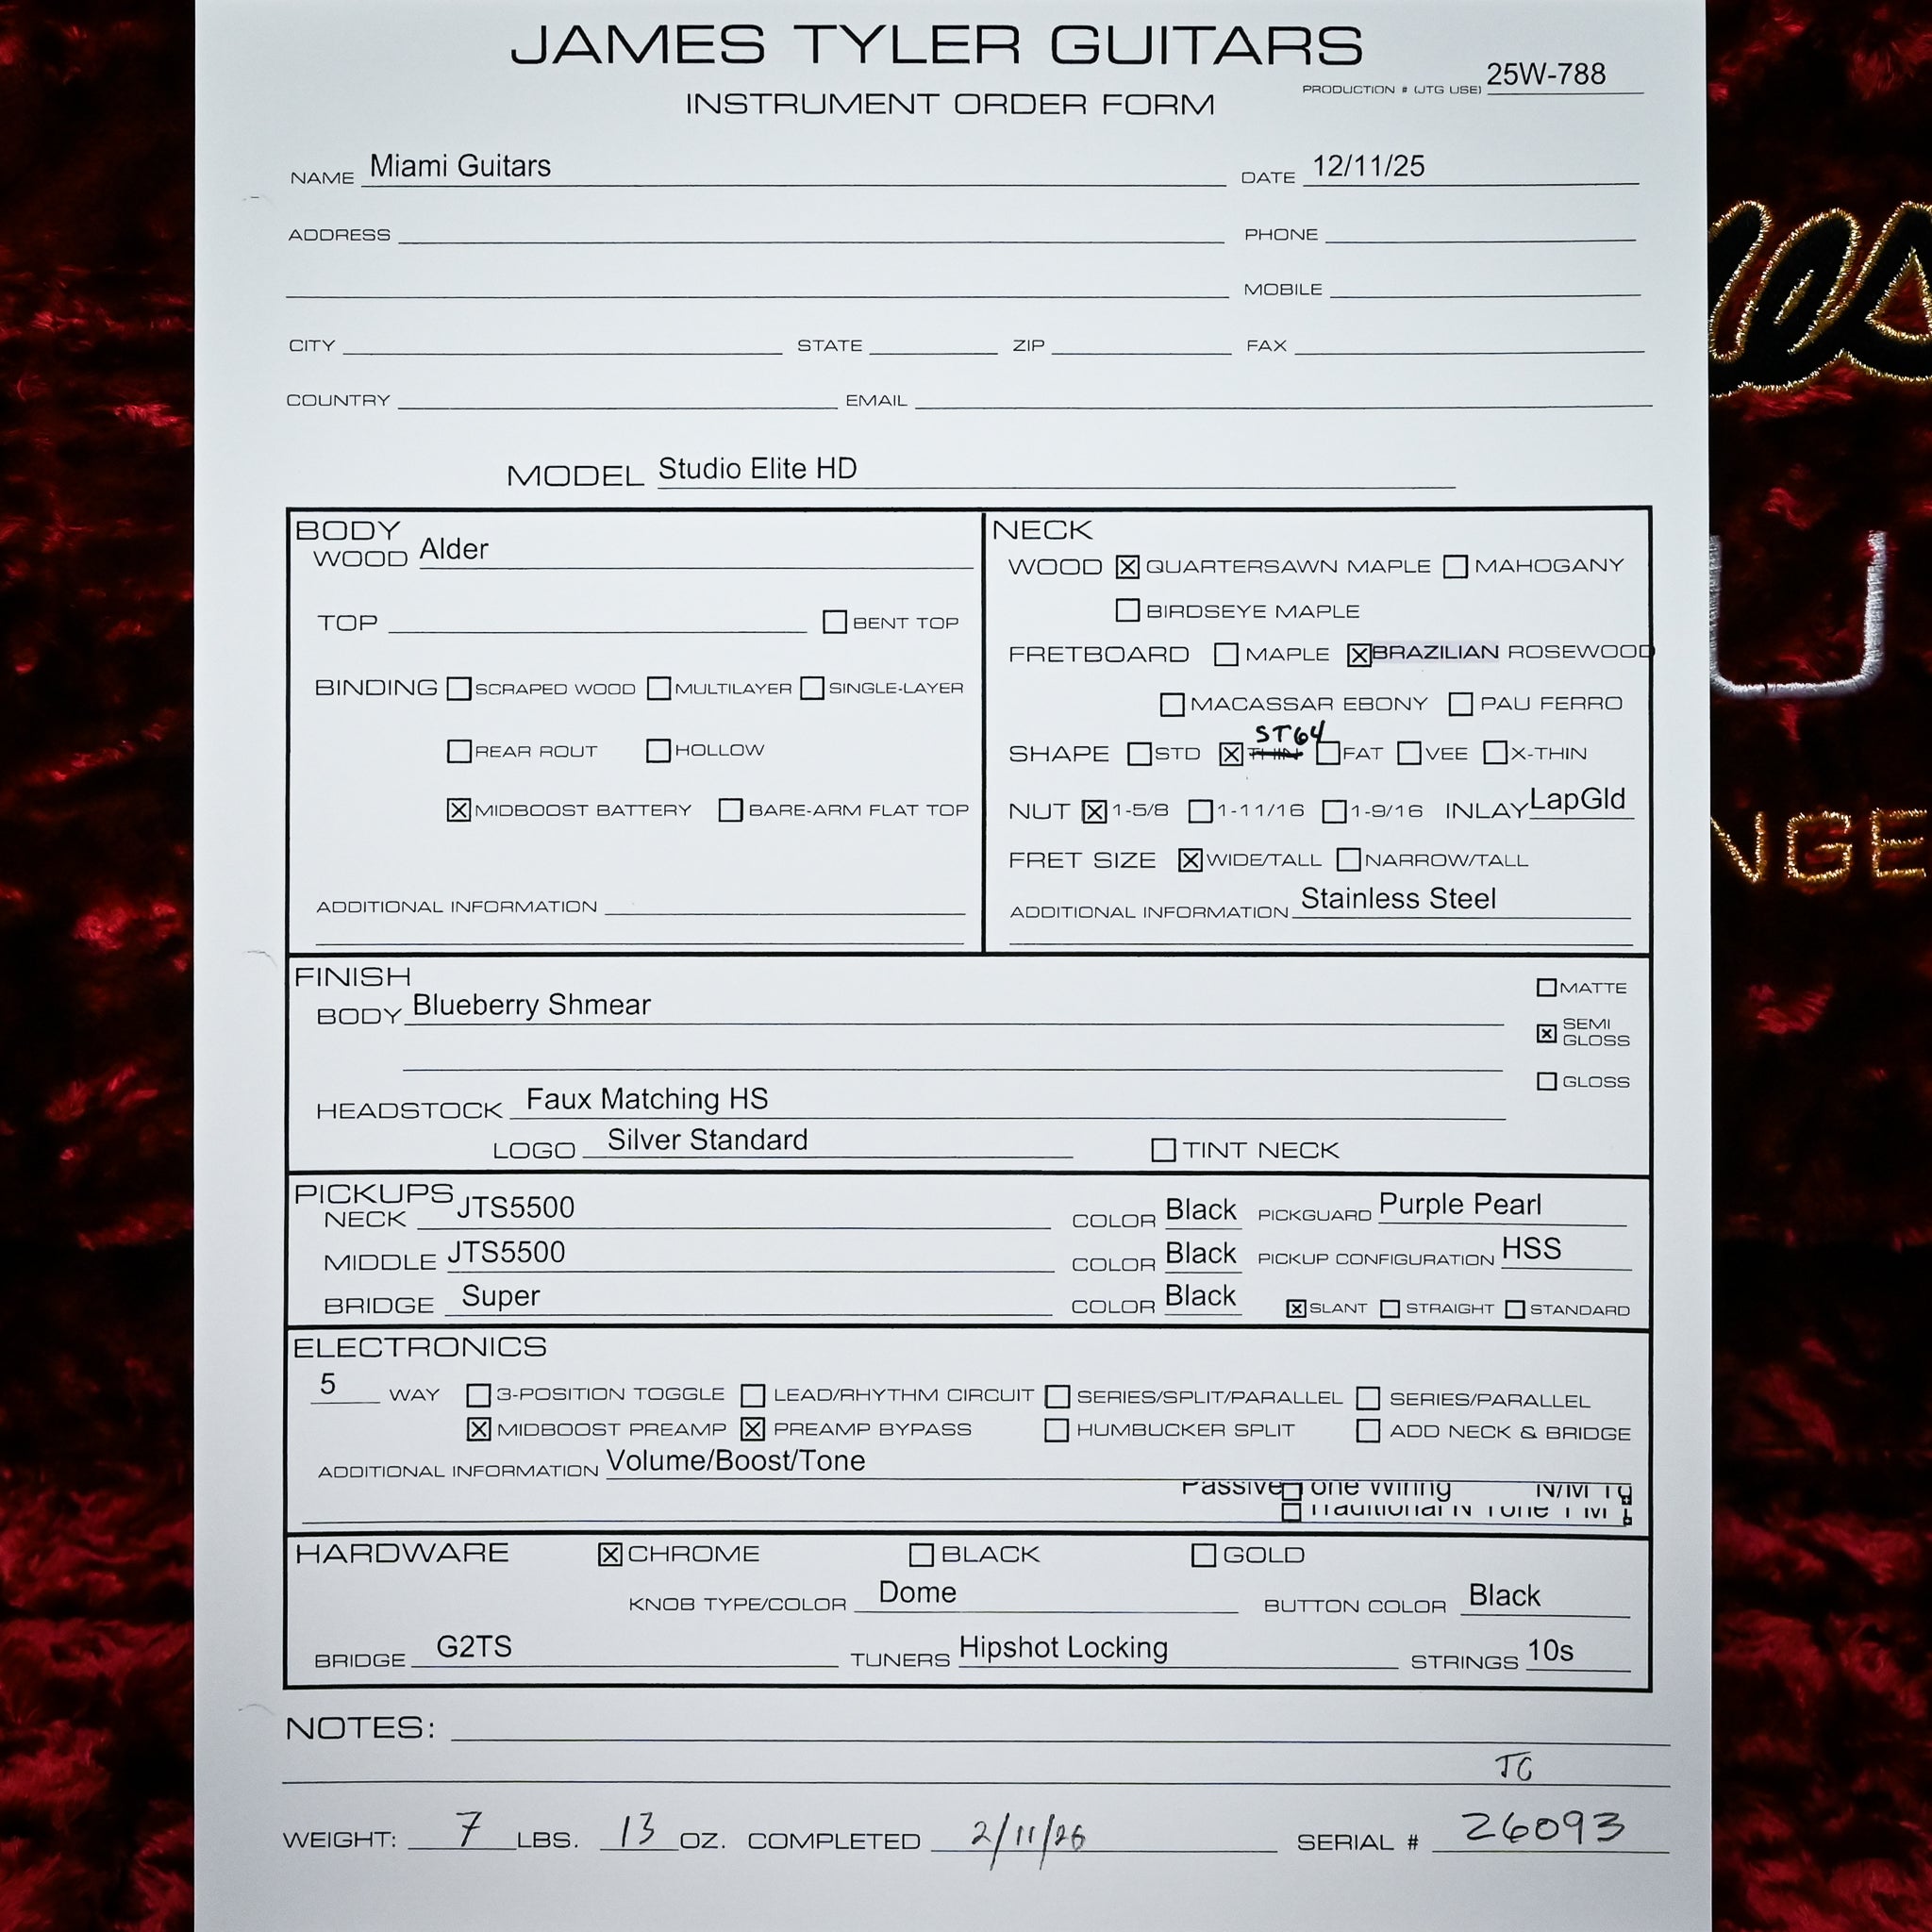 JAMES TYLER GUITARS
INSTRUMENT ORDER FORM
PRODUCTION # (JTG USE) 25W-788
NAME Miami Guitars DATE 12/11/25
ADDRESS PHONE
MOBILE
CITY STATE ZIP FAX
COUNTRY EMAIL
MODEL Studio Elite HD
BODY
WOOD Alder
TOP BENT TOP
BINDING SCRAPED WOOD MULTILAYER SINGLE-LAYER
REAR ROUT HOLLOW
MIDBOOST BATTERY BARE-ARM FLAT TOP
ADDITIONAL INFORMATION
NECK
WOOD QUARTERSAWN MAPLE MAHOGANY
BIRDSEYE MAPLE
FRETBOARD MAPLE BRAZILIAN ROSEWOOD
MACASSAR EBONY PAU FERRO
ST64
SHAPE STD THIN FAT VEE X-THIN
NUT 1-5/8 1-11/16 1-9/16 INLAY LapGld
FRET SIZE WIDE/TALL NARROW/TALL
ADDITIONAL INFORMATION Stainless Steel
FINISH
BODY Blueberry Shmear
MATTE
SEMI
GLOSS
GLOSS
HEADSTOCK Faux Matching HS
LOGO Silver Standard TINT NECK
PICKUPS
NECK JTS5500 COLOR Black PICKGUARD Purple Pearl
MIDDLE JTS5500 COLOR Black PICKUP CONFIGURATION HSS
BRIDGE Super COLOR Black SLANT STRAIGHT STANDARD
ELECTRONICS
5 WAY 3-POSITION TOGGLE LEAD/RHYTHM CIRCUIT SERIES/SPLIT/PARALLEL SERIES/PARALLEL
MIDBOOST PREAMP PREAMP BYPASS HUMBUCKER SPLIT ADD NECK & BRIDGE
ADDITIONAL INFORMATION Volume/Boost/Tone
Passive Tone Wiring N/M
Traditional N Tone
HARDWARE CHROME BLACK GOLD
KNOB TYPE/COLOR Dome BUTTON COLOR Black
BRIDGE G2TS TUNERS Hipshot Locking STRINGS 10s
NOTES:
WEIGHT: 7 LBS. 13 OZ. COMPLETED 2/11/26 SERIAL # 26093
NGE